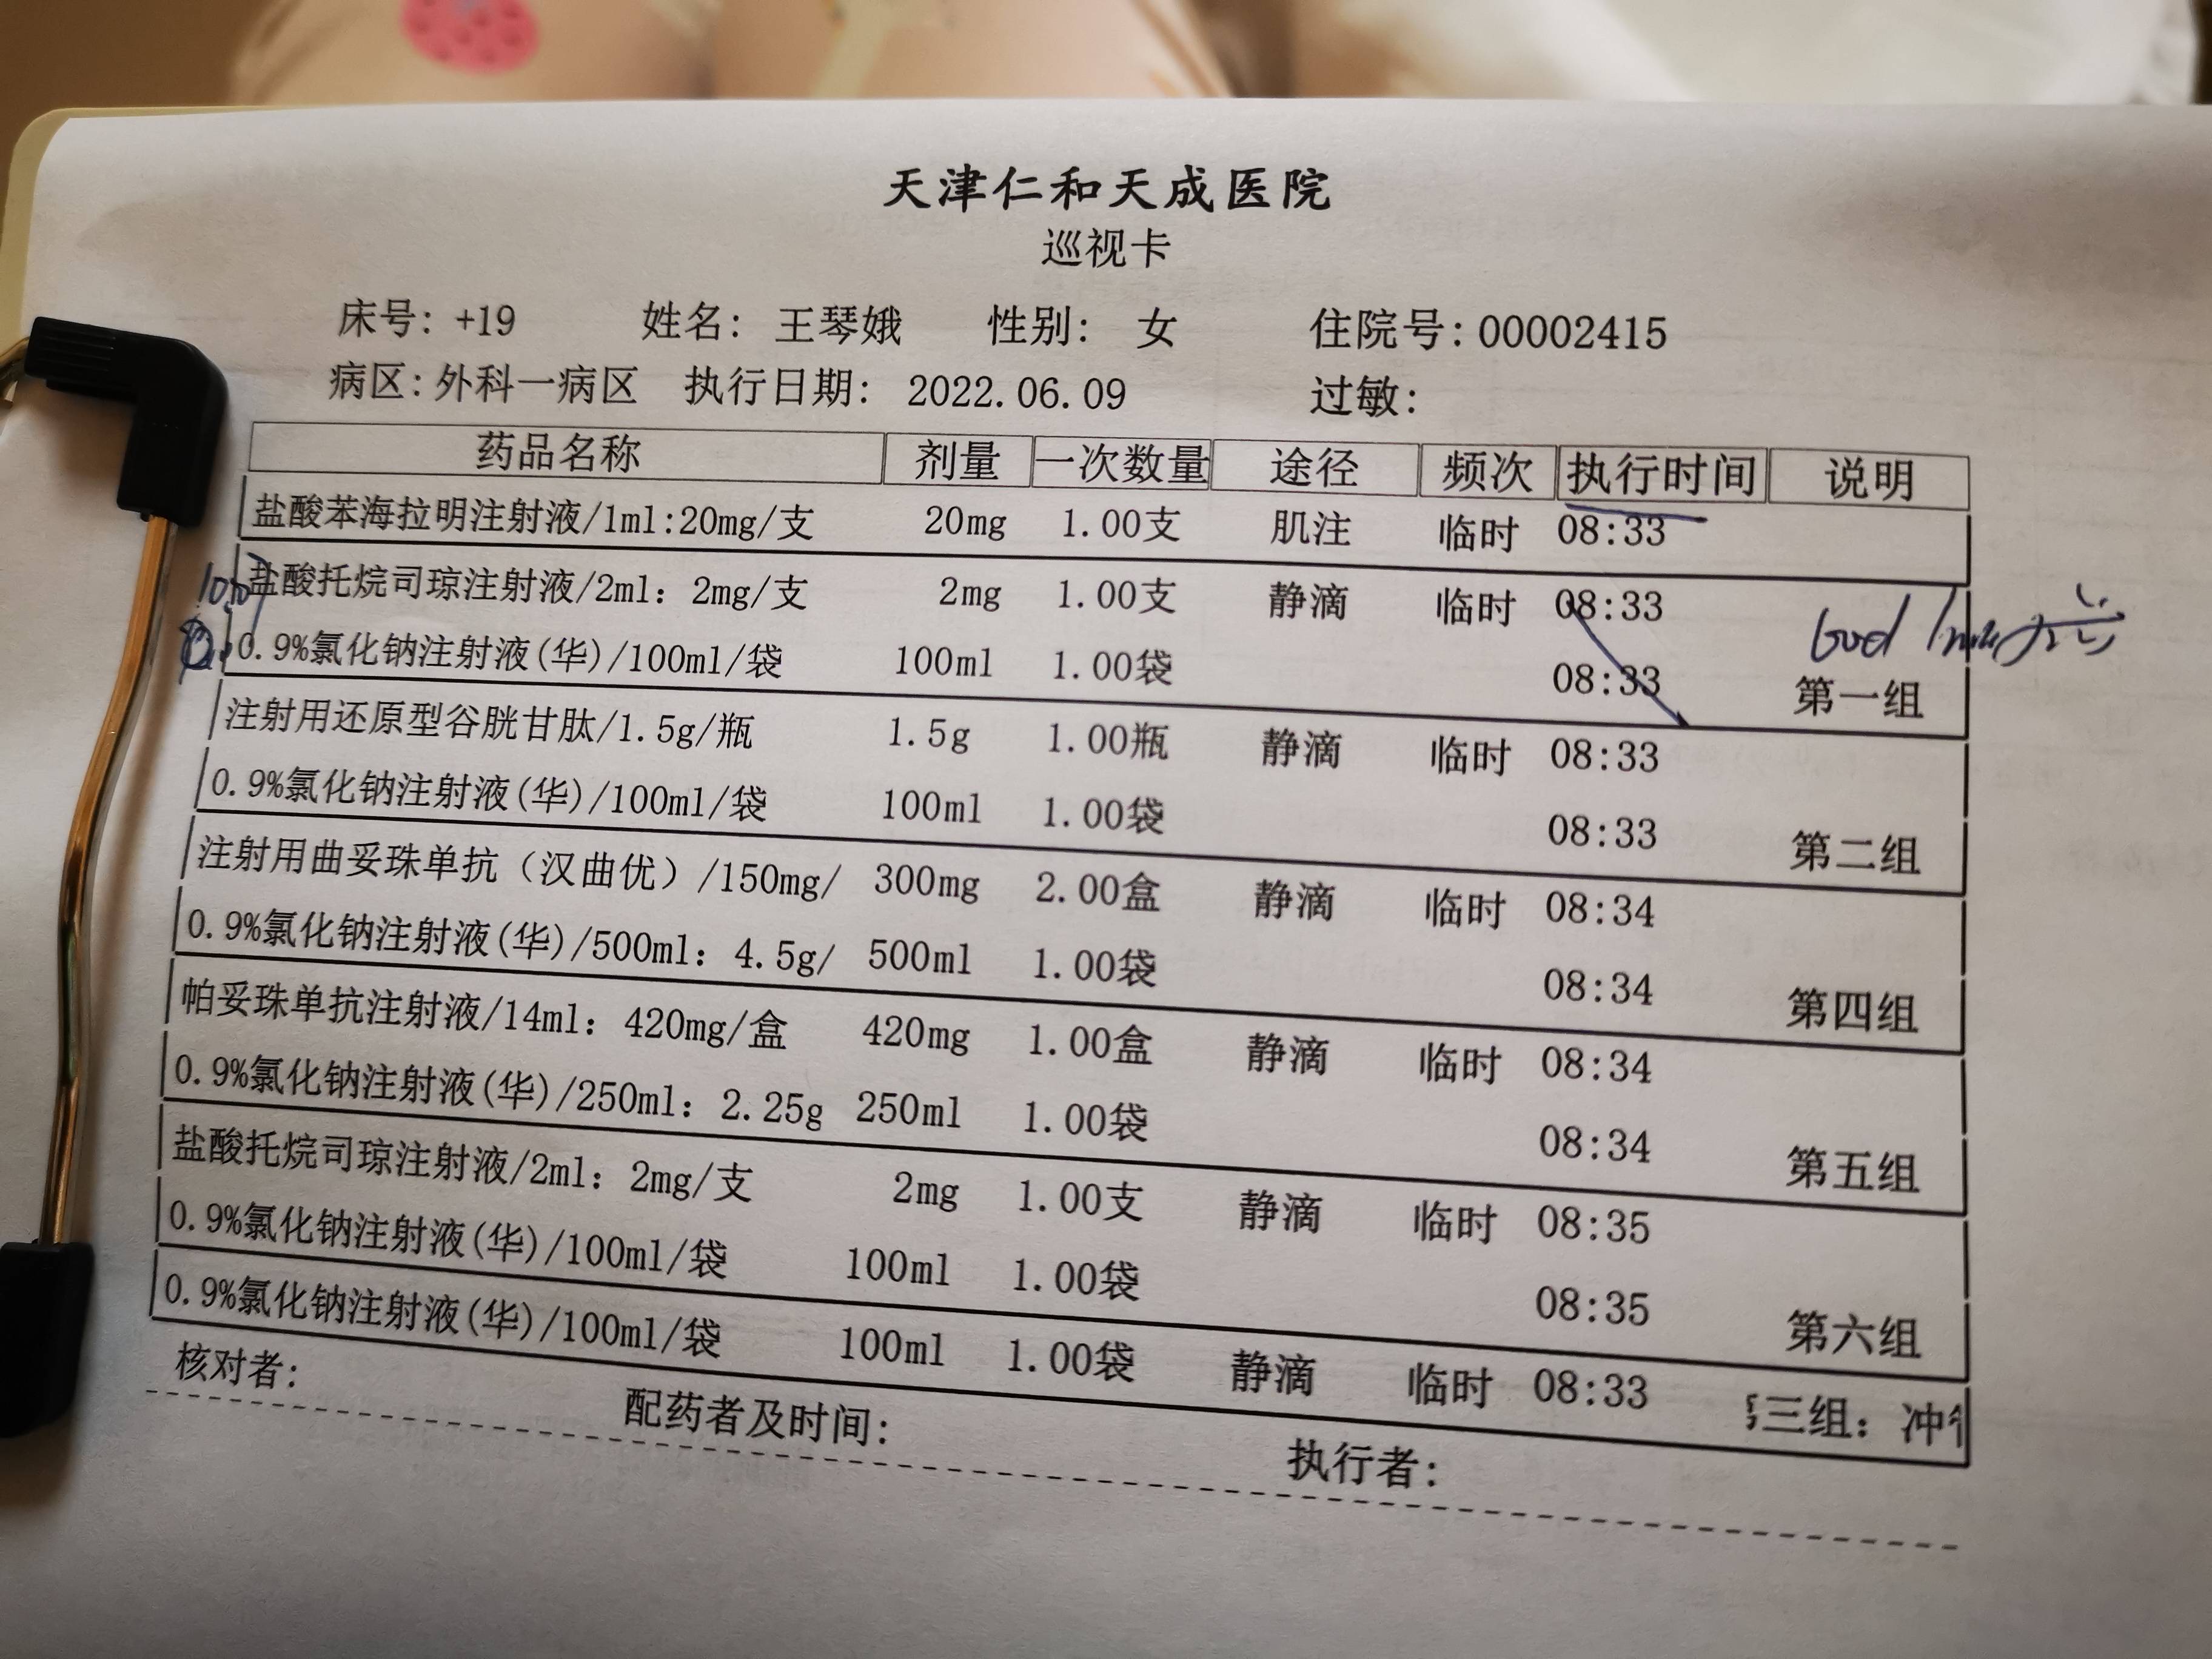 天津仁和天成医院
巡视卡
床号: +19 姓名: 王琴娥 性别: 女 住院号: 00002415
病区: 外科一病区 执行日期: 2022.06.09 过敏:
药品名称 剂量 一次数量 途径 频次 执行时间 说明
盐酸苯海拉明注射液/1ml:20mg/支 20mg 1.00支 肌注 临时 08:33
盐酸托烷司琼注射液/2ml: 2mg/支 2mg 1.00支 静滴 临时 08:33
0.9%氯化钠注射液(华)/100ml/袋 100ml 1.00袋 08:33 第一组
注射用还原型谷胱甘肽/1.5g/瓶 1.5g 1.00瓶 静滴 临时 08:33
0.9%氯化钠注射液(华)/100ml/袋 100ml 1.00袋 08:33 第二组
注射用曲妥珠单抗（汉曲优）/150mg/ 300mg 2.00盒 静滴 临时 08:34
0.9%氯化钠注射液(华)/500ml: 4.5g/ 500ml 1.00袋 08:34 第四组
帕妥珠单抗注射液/14ml: 420mg/盒 420mg 1.00盒 静滴 临时 08:34
0.9%氯化钠注射液(华)/250ml: 2.25g 250ml 1.00袋 08:34 第五组
盐酸托烷司琼注射液/2ml: 2mg/支 2mg 1.00支 静滴 临时 08:35
0.9%氯化钠注射液(华)/100ml/袋 100ml 1.00袋 08:35 第六组
0.9%氯化钠注射液(华)/100ml/袋 100ml 1.00袋 静滴 临时 08:33 三组: 冲
核对者: 配药者及时间: 执行者: